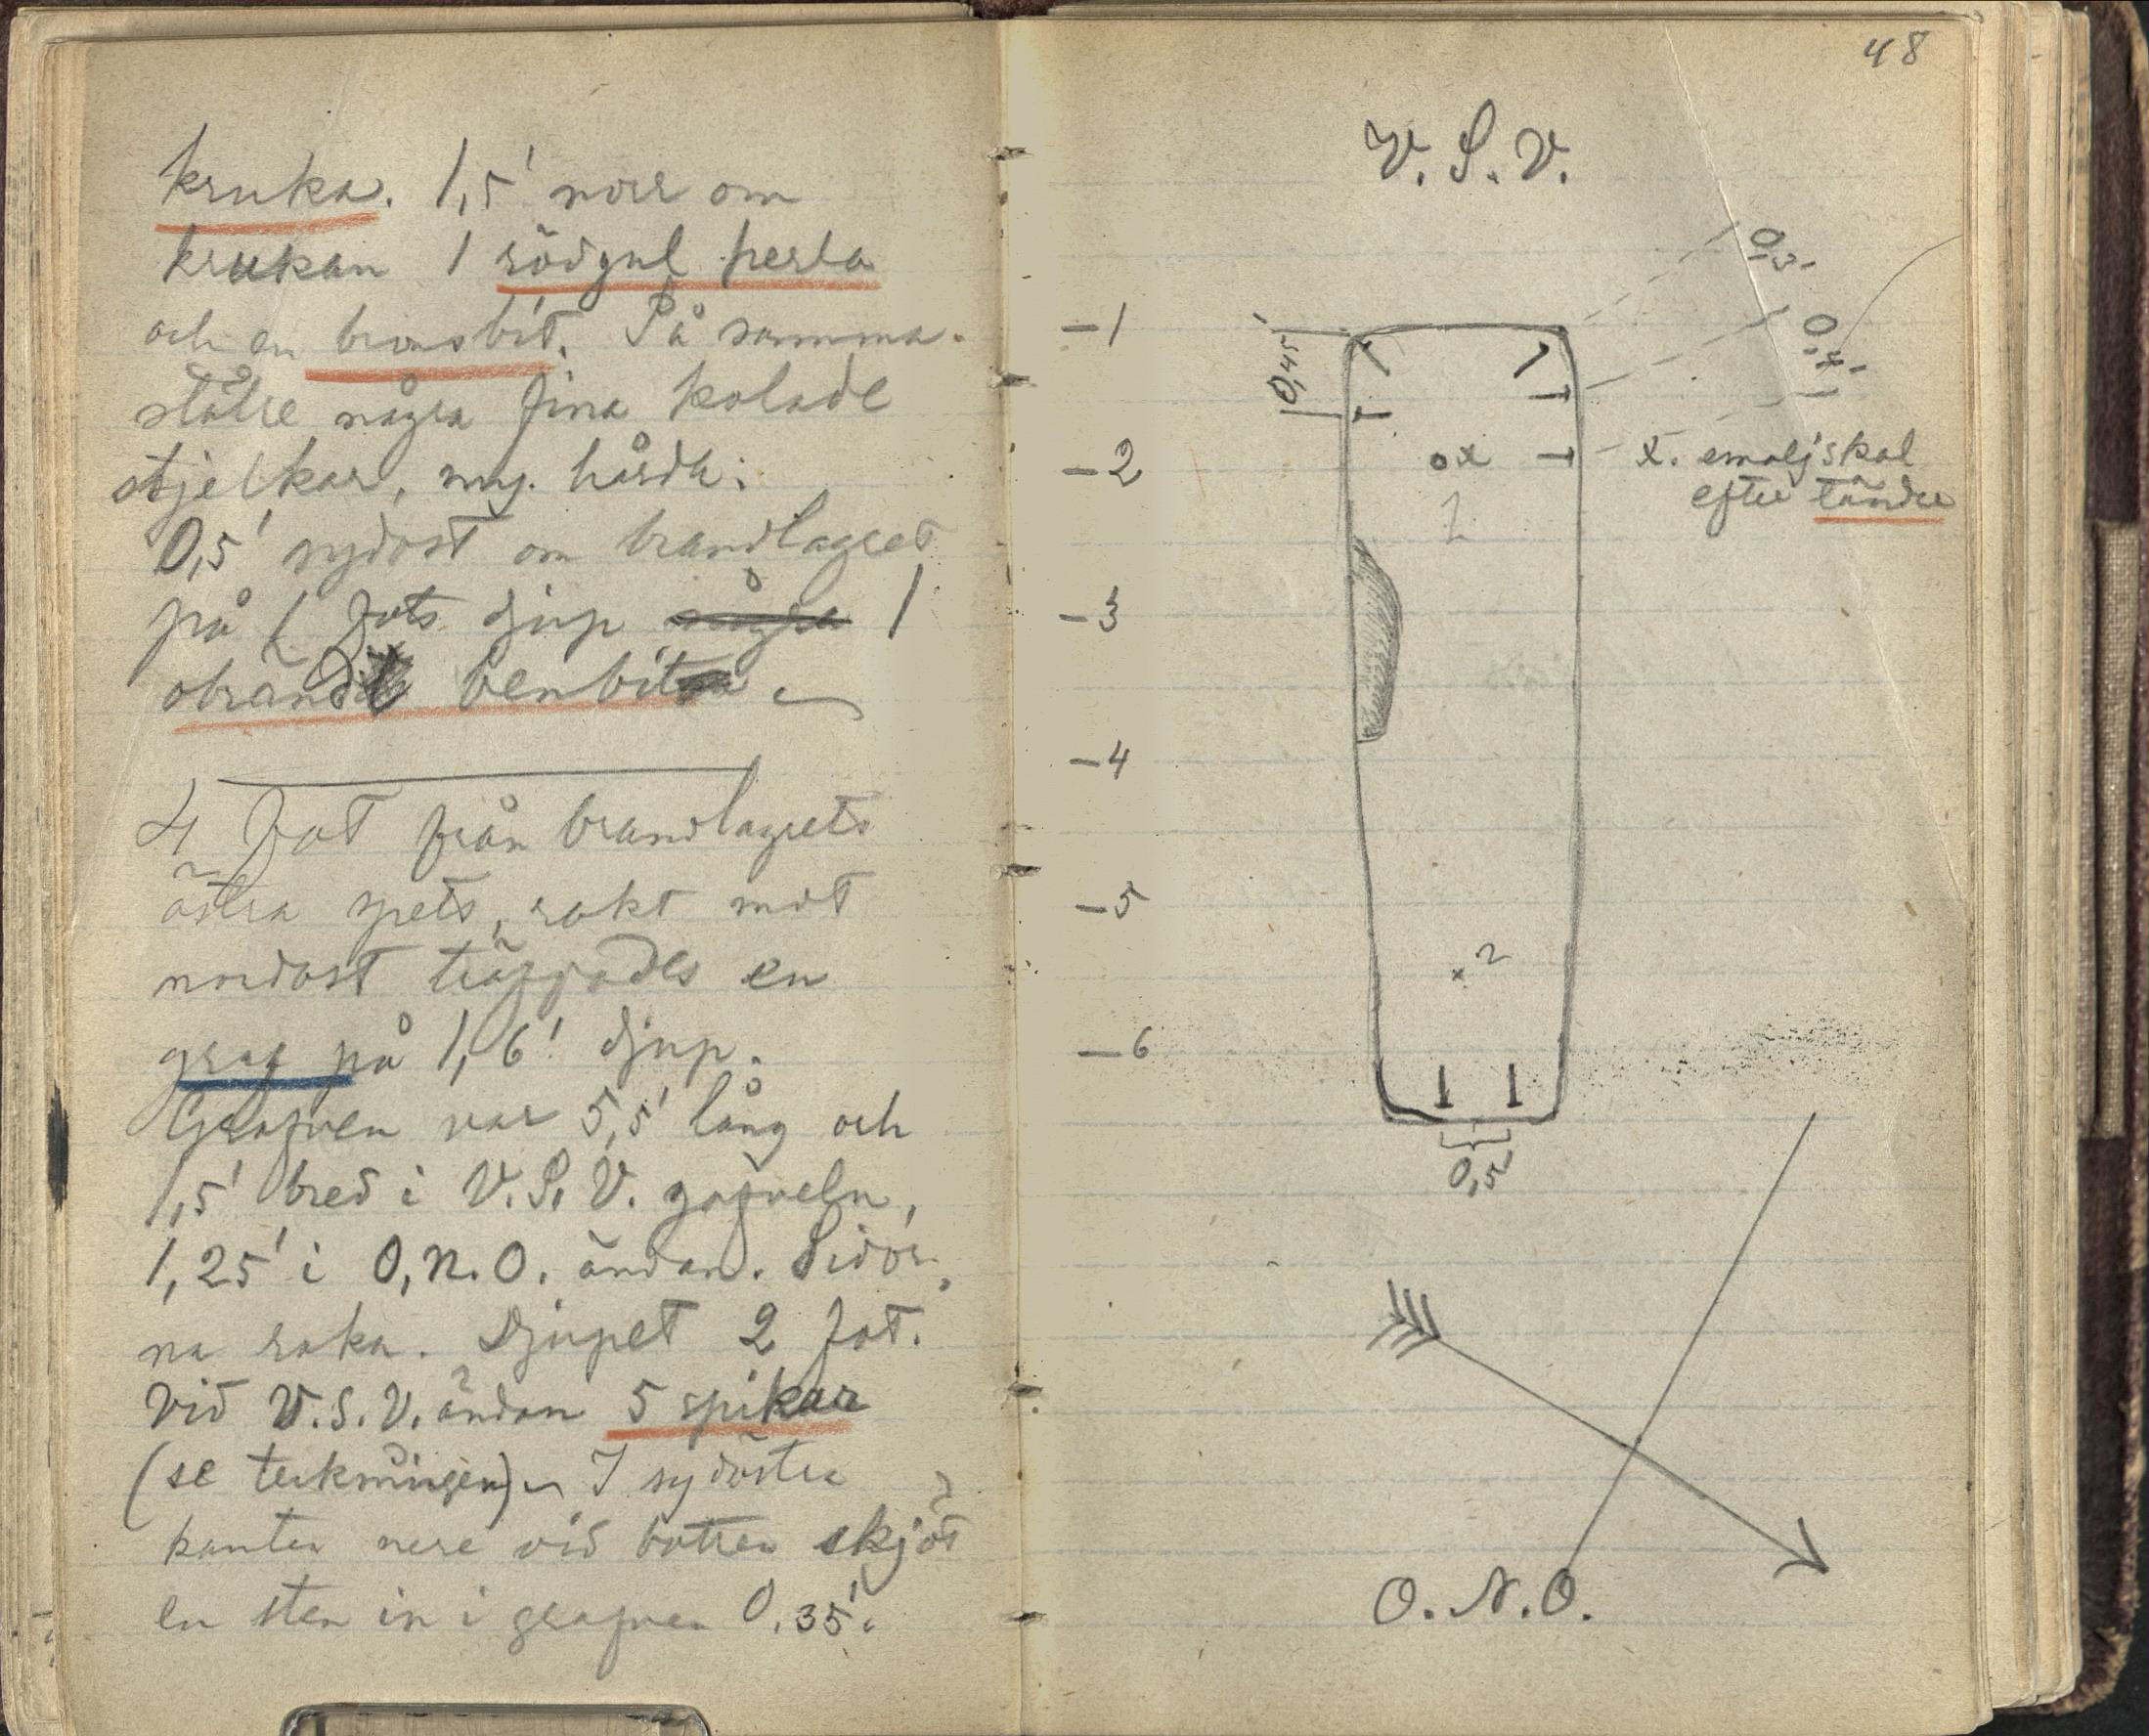 kruka. 1,5' norr om
krukan 1 rödgul perla
och en bronsbit. På samma
ställe några fina kolade
stjelkar, myc. hårdt.
0,5' sydost om brandlagret
på 1 fots djup några 1
obränd benbit
4 fot från brandlagrets
östra spets, rakt mot
nordost träffades en
graf på 1,6' djup.
Grafven var 5,5' lång och
1,5' bred i V.S.V. gafveln,
1,25' i O.N.O. ändan. Sidor-
na raka. Djupet 2 fot.
Vid V.S.V. ändan 5 spikar
(se teckningen) I sydöstra
kanten nere vid botten skjöt
en sten in i grafven 0,35'.
48
V.S.V.
0,3'
0,4'
-1
0,45'
-2
x
x. emaljskal
efter tänder
-3
-4
-5
x 2
-6
0,5'
O.N.O.